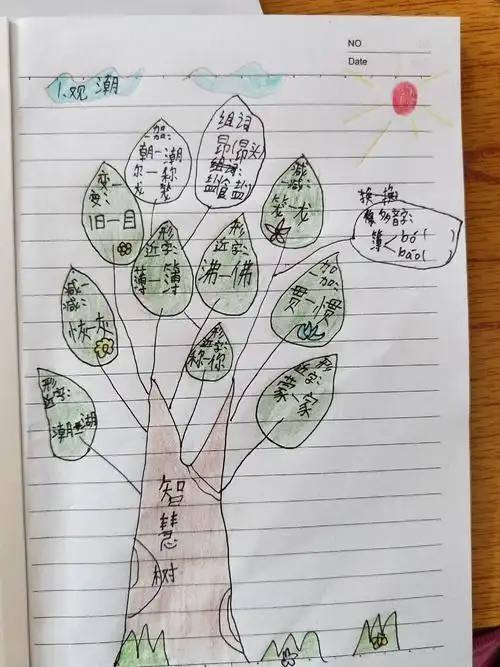 NO
Date
1.观潮
一加:
朝一潮
尔一称
龙一笼
组词
昂(昂头)
组词:
盐(食盐)
减一
减:
笼一龙
变一
变:
旧一目
形
近字:
薄一簿
形
近字:
沸一佛
换一换
多音字:
薄
bó1
báo1
加一
加:
贯一惯
减一
减:
恢一灰
形
近字:
称一你
形
近字:
蒙一家
形
近字:
潮一湖
智
慧
树